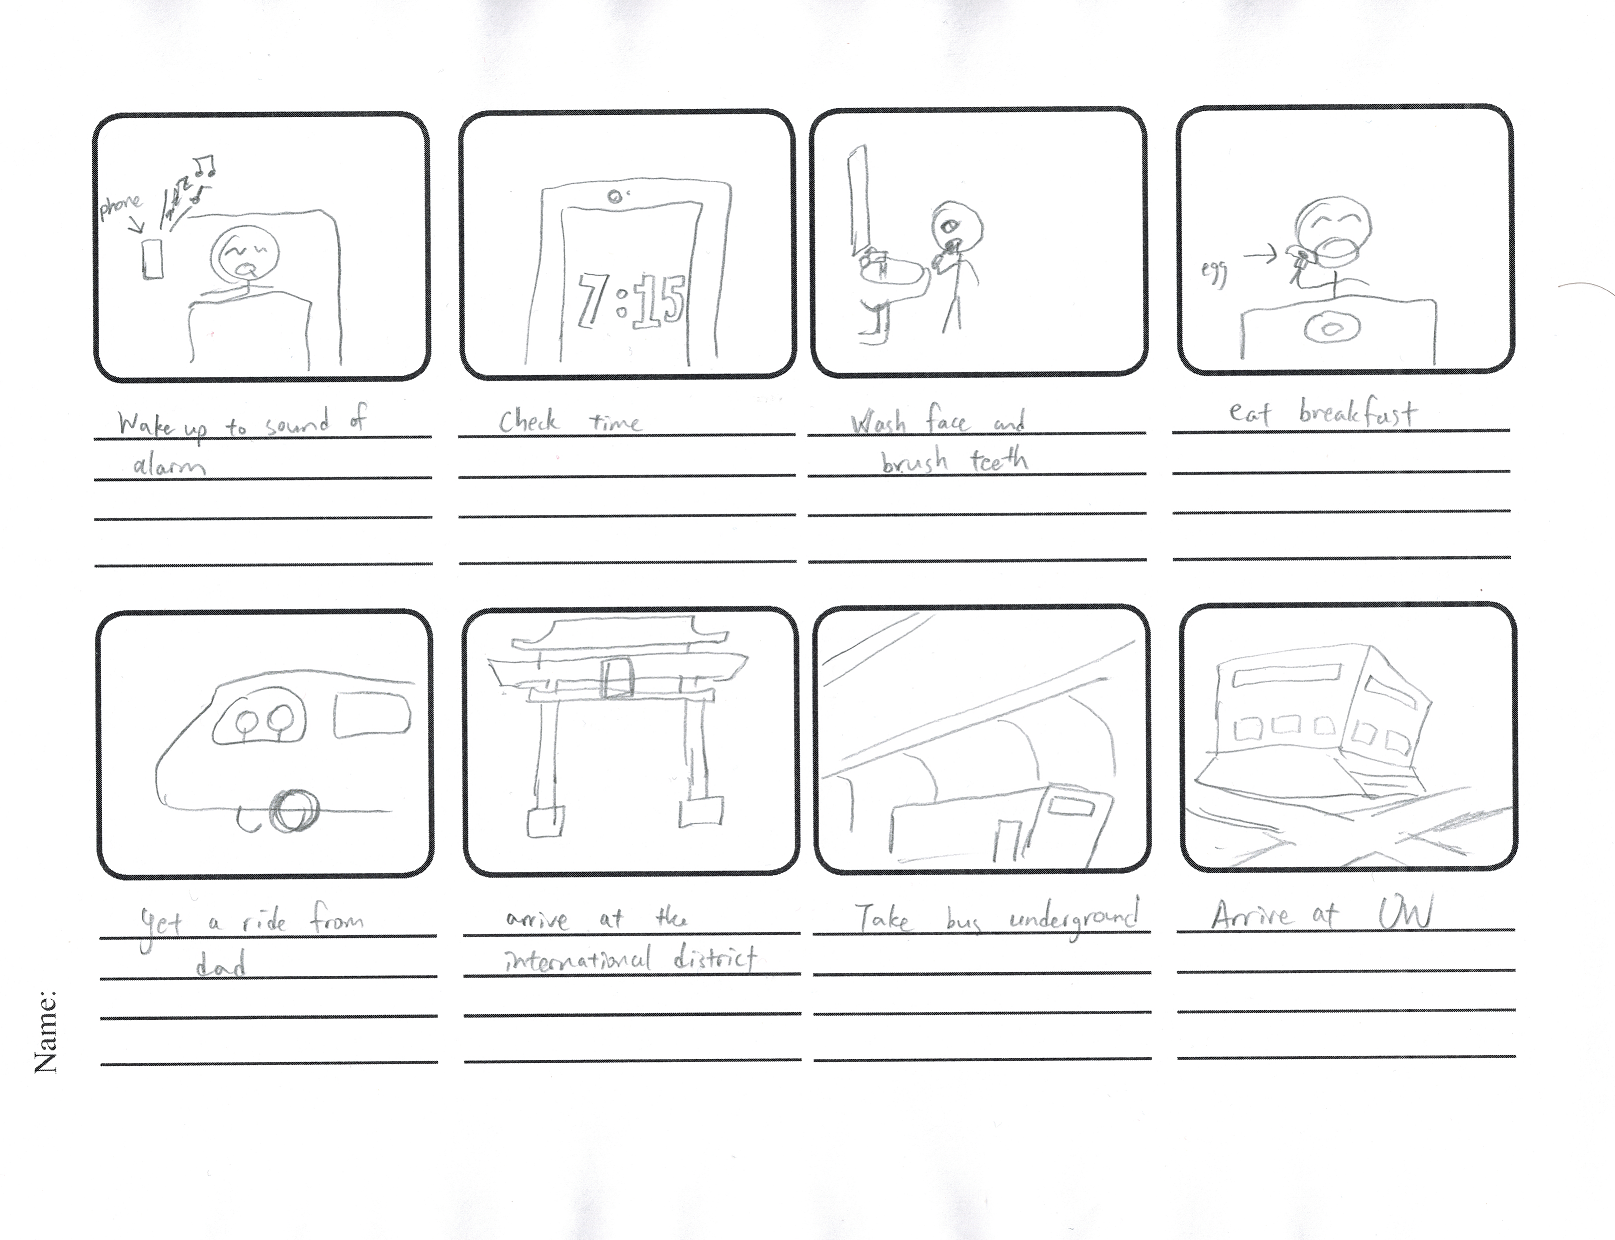 phone
Wake up to sound of
alarm
7:15
Check time
Wash face and
brush teeth
egg
eat breakfast
get a ride from
dad
arrive at the
international district
Take bus underground
Arrive at UW
Name: